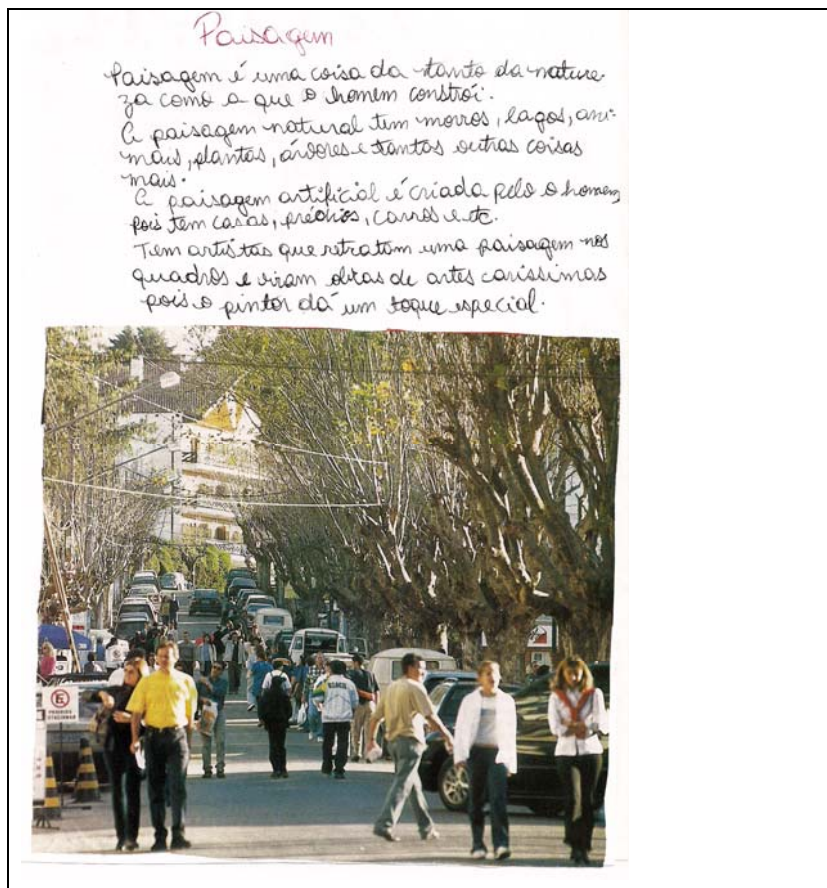 Paisagem
Paisagem é uma coisa da tanto da nature-
za como a que o homem constrói.
A paisagem natural tem morros, lagos, ani-
mais, plantas, árvores e tantas outras coisas
mais.
A paisagem artificial é criada pelo o homem
pois tem casas, prédios, carros e etc.
Tem artistas que retratam uma paisagem nos
quadros e viram obras de artes caríssimas
pois o pintor dá um toque especial.
E
PROIBIDO
ESTACIONAR